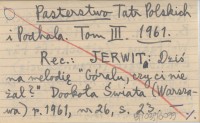 Pasterstwo Tatr Polskich
i Podhala. Tom III. 1961.
Rec.: JERWIT, Dziś
na melodię "Góralu, czy ci nie
żal?" Dookoła Świata (Warsza-
wa) r. 1961, nr 26, s. 23.